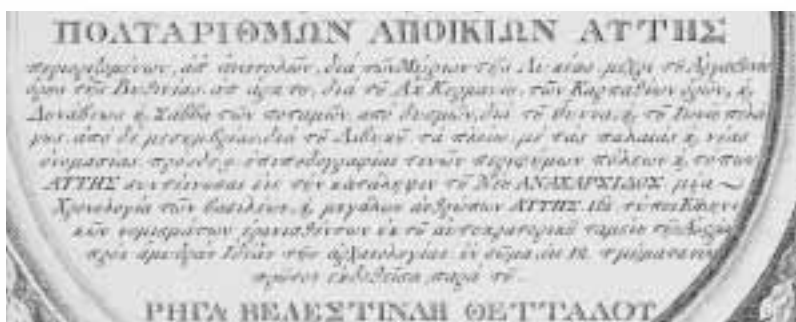 ΠΟΛΥΑΡΙΘΜΩΝ ΑΠΟΙΚΙΩΝ ΑΥΤΗΣ
περιοριζομένων, ἀπ' ἀνατολῶν, διὰ τῶν Μύρων τῆς Λυκίας μέχρι τοῦ Ἀργανθωνίου
ὄρους τῆς Βιθυνίας, ἀπ' ἄρκτου, διὰ τοῦ Ἀκ Κερμανίου, τῶν Καρπαθίων ὀρῶν, ϗ
Δουνάβεως ϗ Σάββα τῶν ποταμῶν, ἀπὸ δυσμῶν, διὰ τοῦ Οὔννα, ϗ τοῦ Ἰονίου πελά
γους, ἀπὸ δὲ μεσεμβρίας, διὰ τοῦ Λιβυκοῦ. τὰ πλείω, μὲ τὰς παλαιὰς ϗ νέας
ὀνομασίας, πρὸς δὲ, 9 ἐπιπεδογραφίαι τινῶν περιφήμων πόλεων ϗ τόπων
ΑΥΤΗΣ συντείνουσαι εἰς τὴν κατάληψιν τοῦ Νέου ΑΝΑΧΑΡΣΙΔΟΣ μία
Χρονολογία τῶν βασιλέων, ϗ μεγάλων ἀνθρώπων ΑΥΤΗΣ, 161 τύποι Ἑλληνι
κῶν νομισμάτων ἐρανισθέντων ἐκ τοῦ αὐτοκρατορικοῦ ταμείου τῆς
πρὸς ἀμυδρὰν ἰδέαν τῆς ἀρχαιολογίας. ἓν σῶμα, εἰς 12 τμήματα
πρῶτον ἐκδοθεῖσα, παρὰ τοῦ
ΡΗΓΑ ΒΕΛΕΣΤΙΝΛΗ ΘΕΤΤΑΛΟΥ